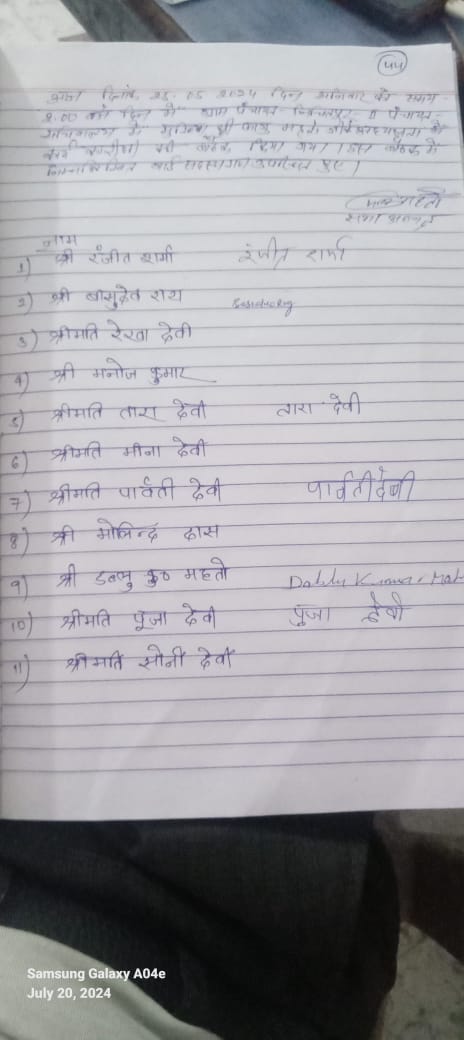 44
आज दिनांक 28.05.2024 दिन शनिवार को समय
2.00 बजे दिन में ग्राम पंचायत पंचायत
में श्री महतो की
की बैठक किया गया। इस बैठक में
निम्नलिखित वार्ड सदस्यगण उपस्थित हुए।
नाम
1) श्री रंजीत शर्मा रंजीत शर्मा
2) श्री बासुदेव राय Basudev Ray
3) श्रीमति रेखा देवी
4) श्री मनोज कुमार
5) श्रीमति तारा देवी तारा देवी
6) श्रीमति मीना देवी
7) श्रीमति पार्वती देवी पार्वती देवी
8) श्री गोविन्द दास
9) श्री डब्लु कु० महतो Dablu Kumar Mah
10) श्रीमति पूजा देवी पुजा देवी
11) श्रीमति सोनी देवी
Samsung Galaxy A04e
July 20, 2024